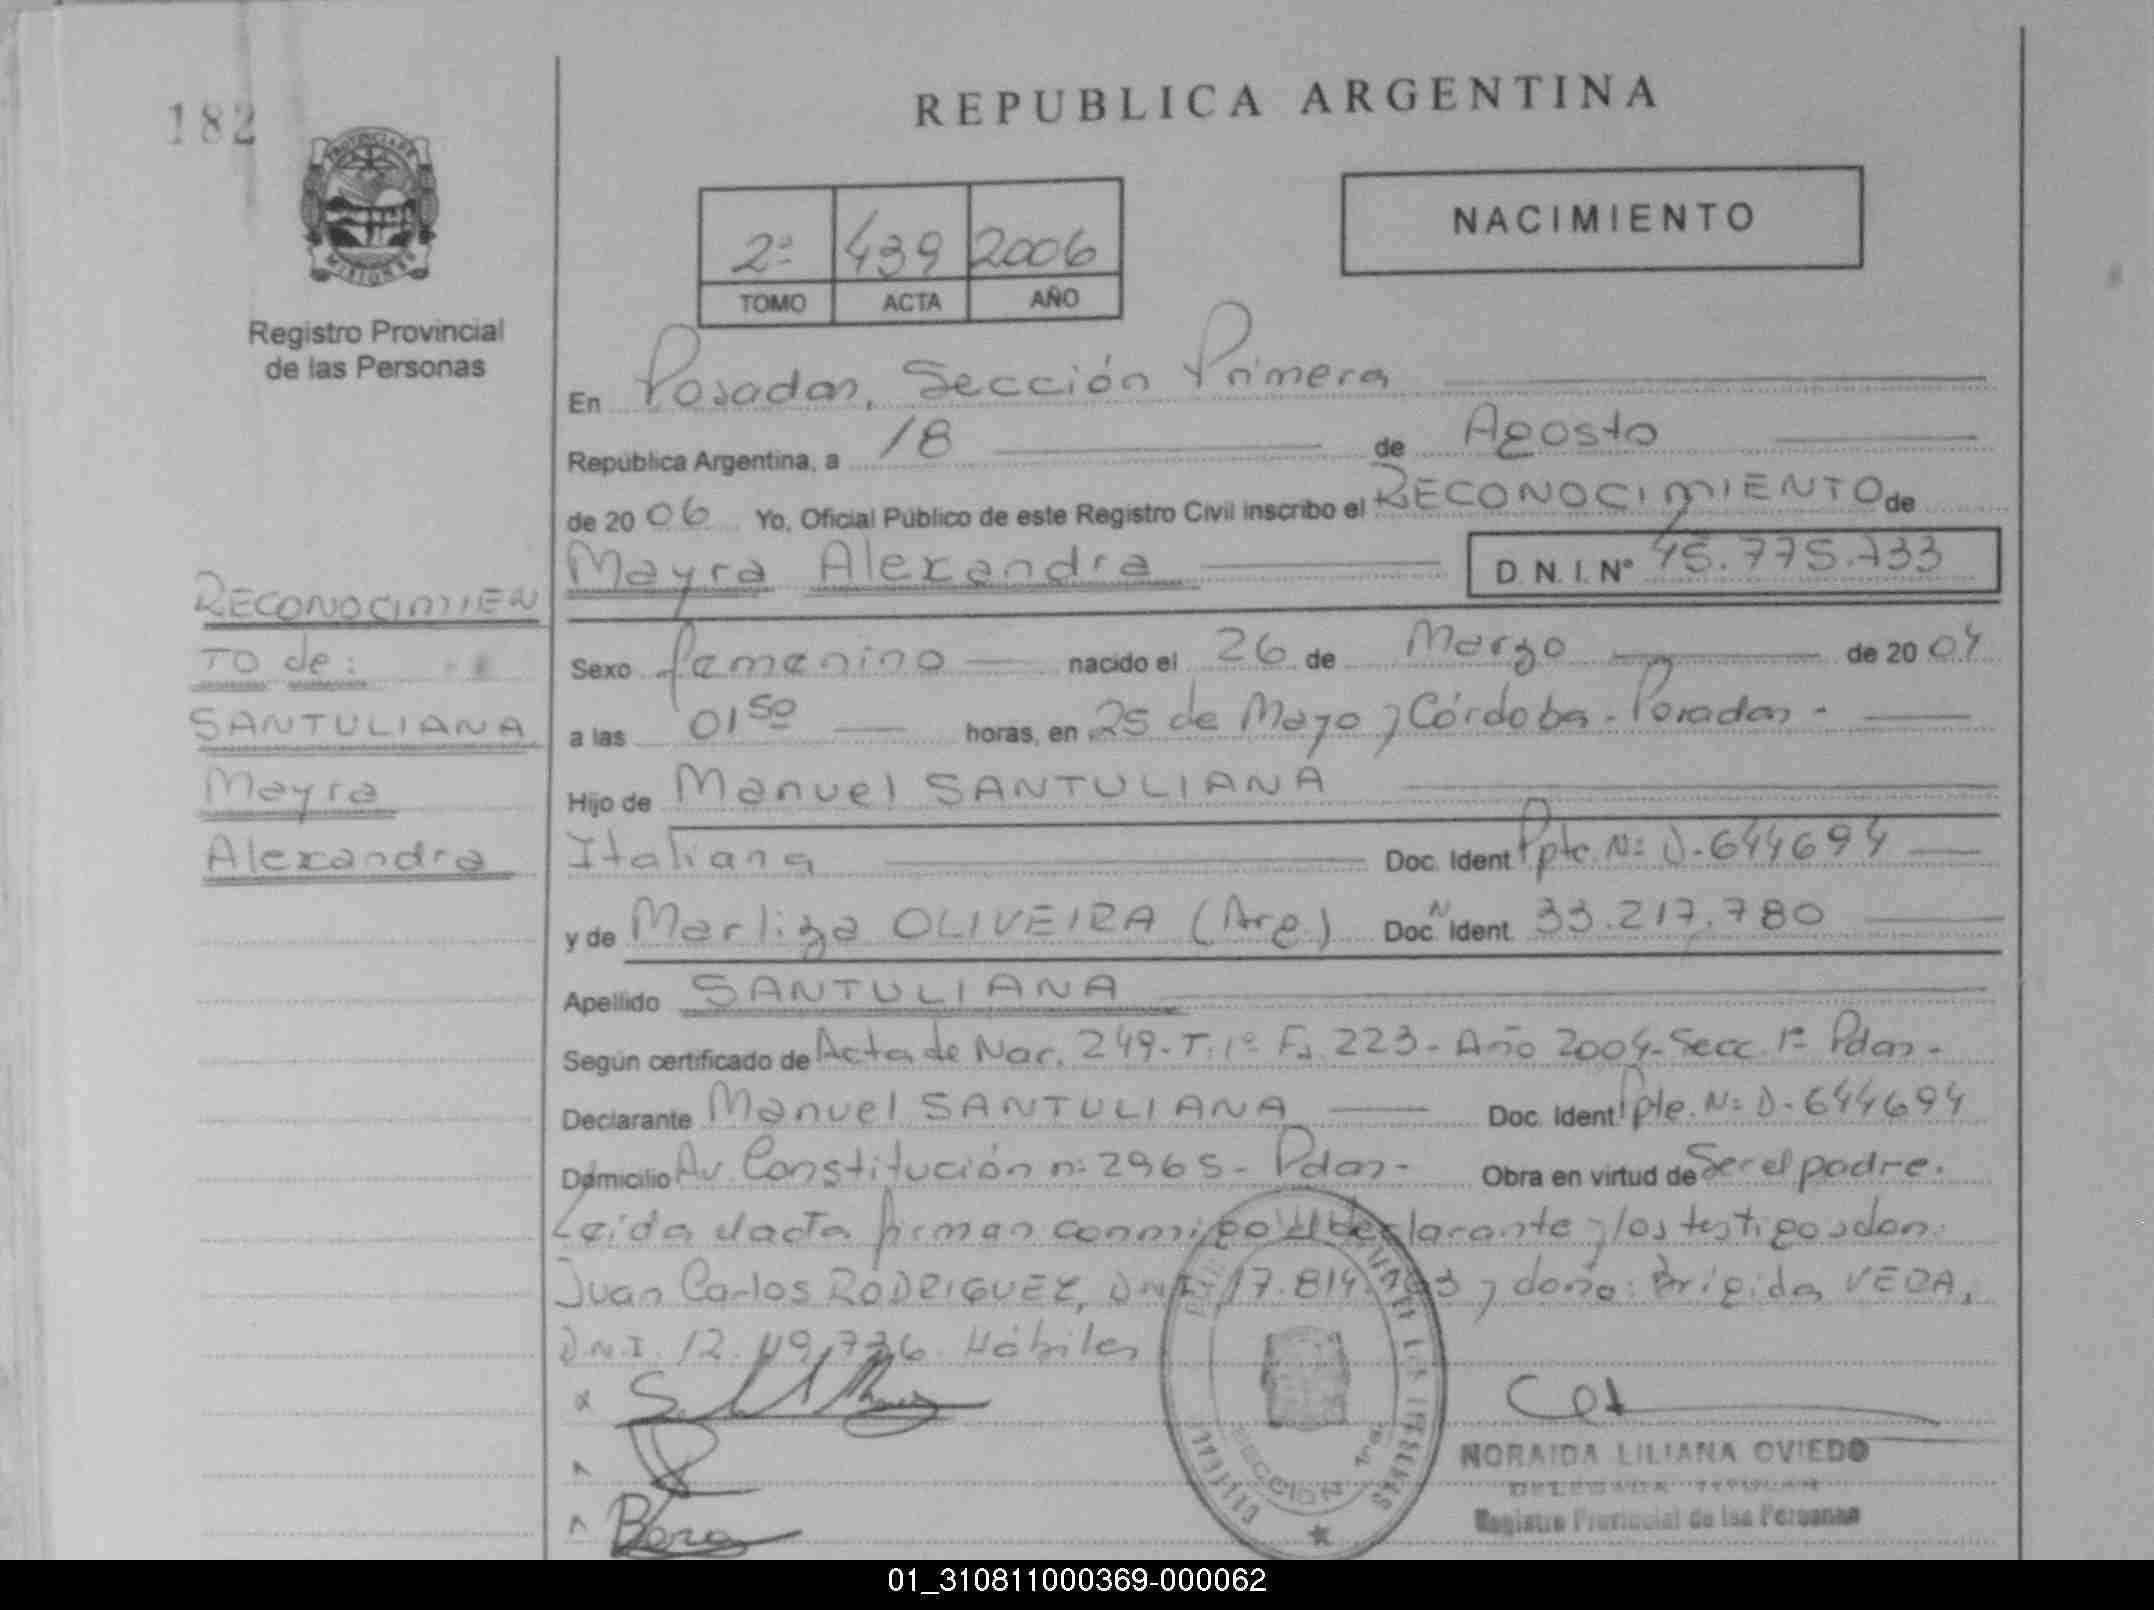 182
REPUBLICA ARGENTINA
PROVINCIA DE
MISIONES
Registro Provincial
de las Personas
2ª 439 2006
TOMO ACTA AÑO
NACIMIENTO
En Posadas, Sección Primera
República Argentina, a 18 de Agosto
de 2006 Yo, Oficial Público de este Registro Civil inscribo el RECONOCIMIENTO de
Mayra Alexandra D.N.I. Nº 45.775.733
RECONOCIMIEN
TO de:
SANTULIANA
Mayra
Alexandra
Sexo femenino nacido el 26 de Marzo de 2004
a las 01 50 horas, en 25 de Mayo y Córdoba - Posadas -
Hijo de Manuel SANTULIANA
Italiana Doc. Ident Ppte. Nº D-644694
y de Marliza OLIVEIRA (Arg) Doc. N Ident. 33.217.780
Apellido SANTULIANA
Según certificado de Acta de Nac. 249-T:1º Fº 223- Año 2004- Secc. 1ª Pdas-
Declarante Manuel SANTULIANA Doc. Ident. Ppte. Nº D-644694
Domicilio Av. Constitución nº 2965- Pdas- Obra en virtud de Ser el padre.
Leída el acta firman conmigo el declarante y los testigos don
Juan Carlos RODRIGUEZ, DNI. 17.814. y doña: Brigida VERA,
DNI. 12. Hábiles
SECCION 1ra.
NORAIDA LILIANA OVIEDO
DELEGADA TITULAR
Registro Provincial de las Personas
01_310811000369-000062